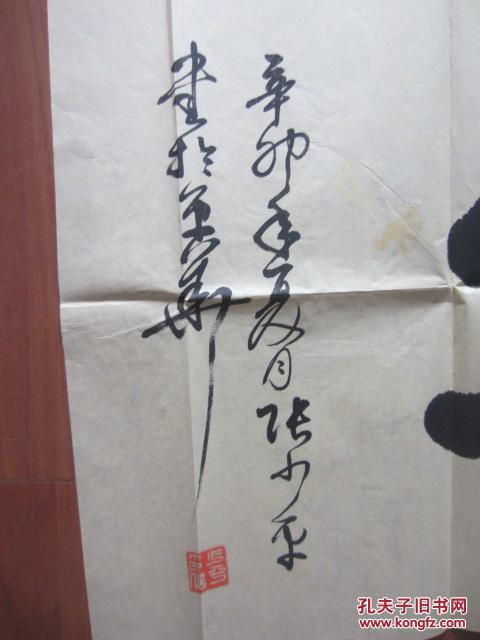 辛卯年夏月张少平
書於京華
孔夫子旧书网
www.kongfz.com